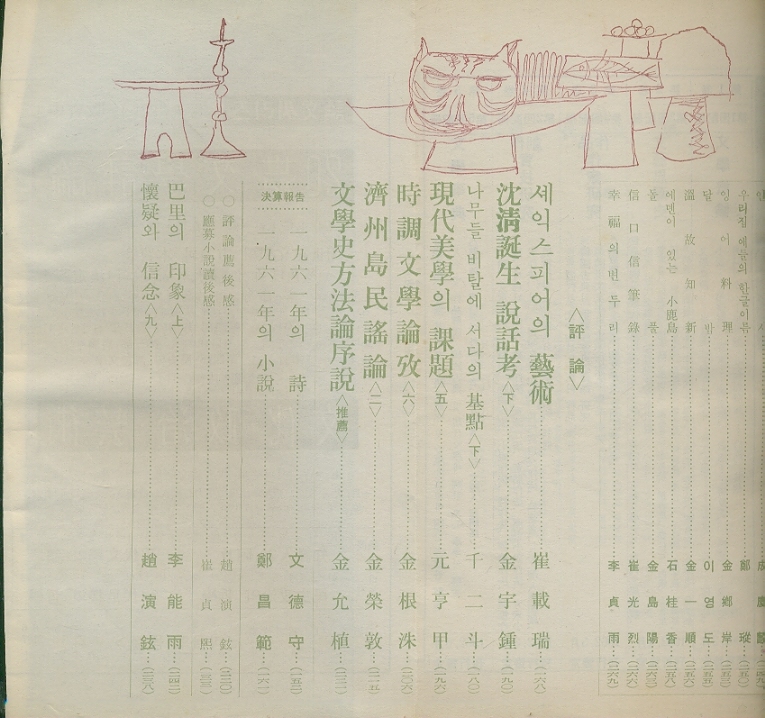 우리집 애들의 한글이름……鄭 瑽…
잉어料理……金鄕岸…
달 밤……이영도…
溫故知新……金一順…(一五五)
에덴이 있는 小鹿島……石桂香…(一五八)
돌 풀……金島陽…(一六三)
信口信筆錄……崔光烈…(一六六)
幸福의 변두리……李貞雨…(一六九)
〈評論〉
셰익스피어의 藝術……崔載瑞…(一六八)
沈淸誕生 說話考〈下〉……金宇鍾…(一九〇)
나무들 비탈에 서다의 基點〈下〉……千二斗…(一八〇)
現代美學의 課題〈五〉……元亨甲…(一九六)
時調文學論攷〈六〉……金根洙…(二〇六)
濟州島民謠論〈二〉……金榮敦…(二一五)
文學史方法論序說〈推薦〉……金允植…
決算報告
一九六一年의 詩……文德守…(一五二)
一九六一年의 小說……鄭昌範…(一六一)
○ 評論薦後感……趙演鉉…(二三〇)
○ 應募小說讀後感……崔貞熙…
巴里의 印象〈上〉……李能雨…(一四二)
懷疑와 信念〈九〉……趙演鉉…(二三八)